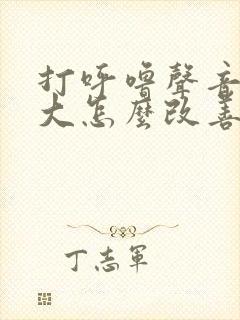 打呼嚕聲音
大怎麼改善
丁志軍